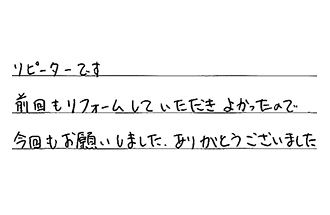 リピーターです
前回もリフォームしていただきよかったので
今回もお願いしました. ありがとうございました